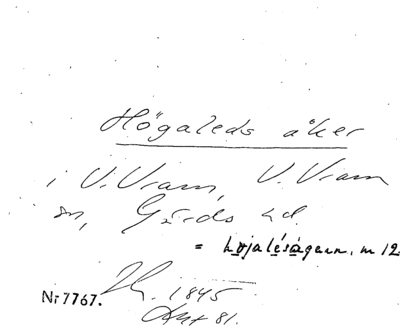 Högaleds åker
i V. Vram, V. Vram
sn, Gärds hd.
= hojaléságarn. m 12
Nr 7767. 1845
Akt 81.